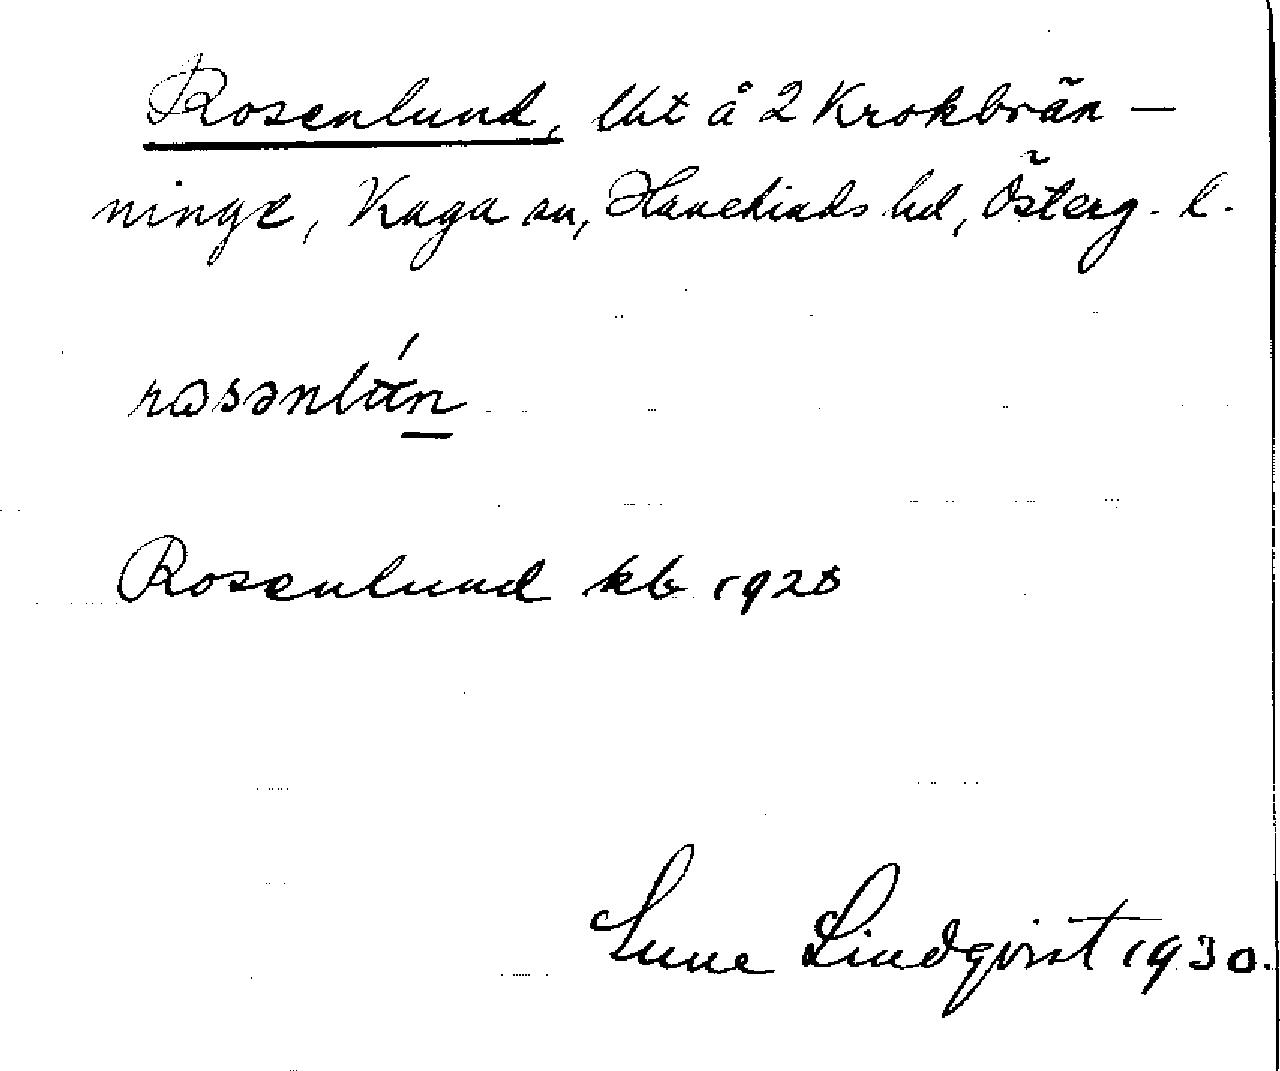 Rosenlund, lht å 2 Krokbrän-
ninge, Kaga sn, Hanekinds hd, Österg. l.
rosənlún
Rosenlund kb 1928
Sune Lindqvist 1930.